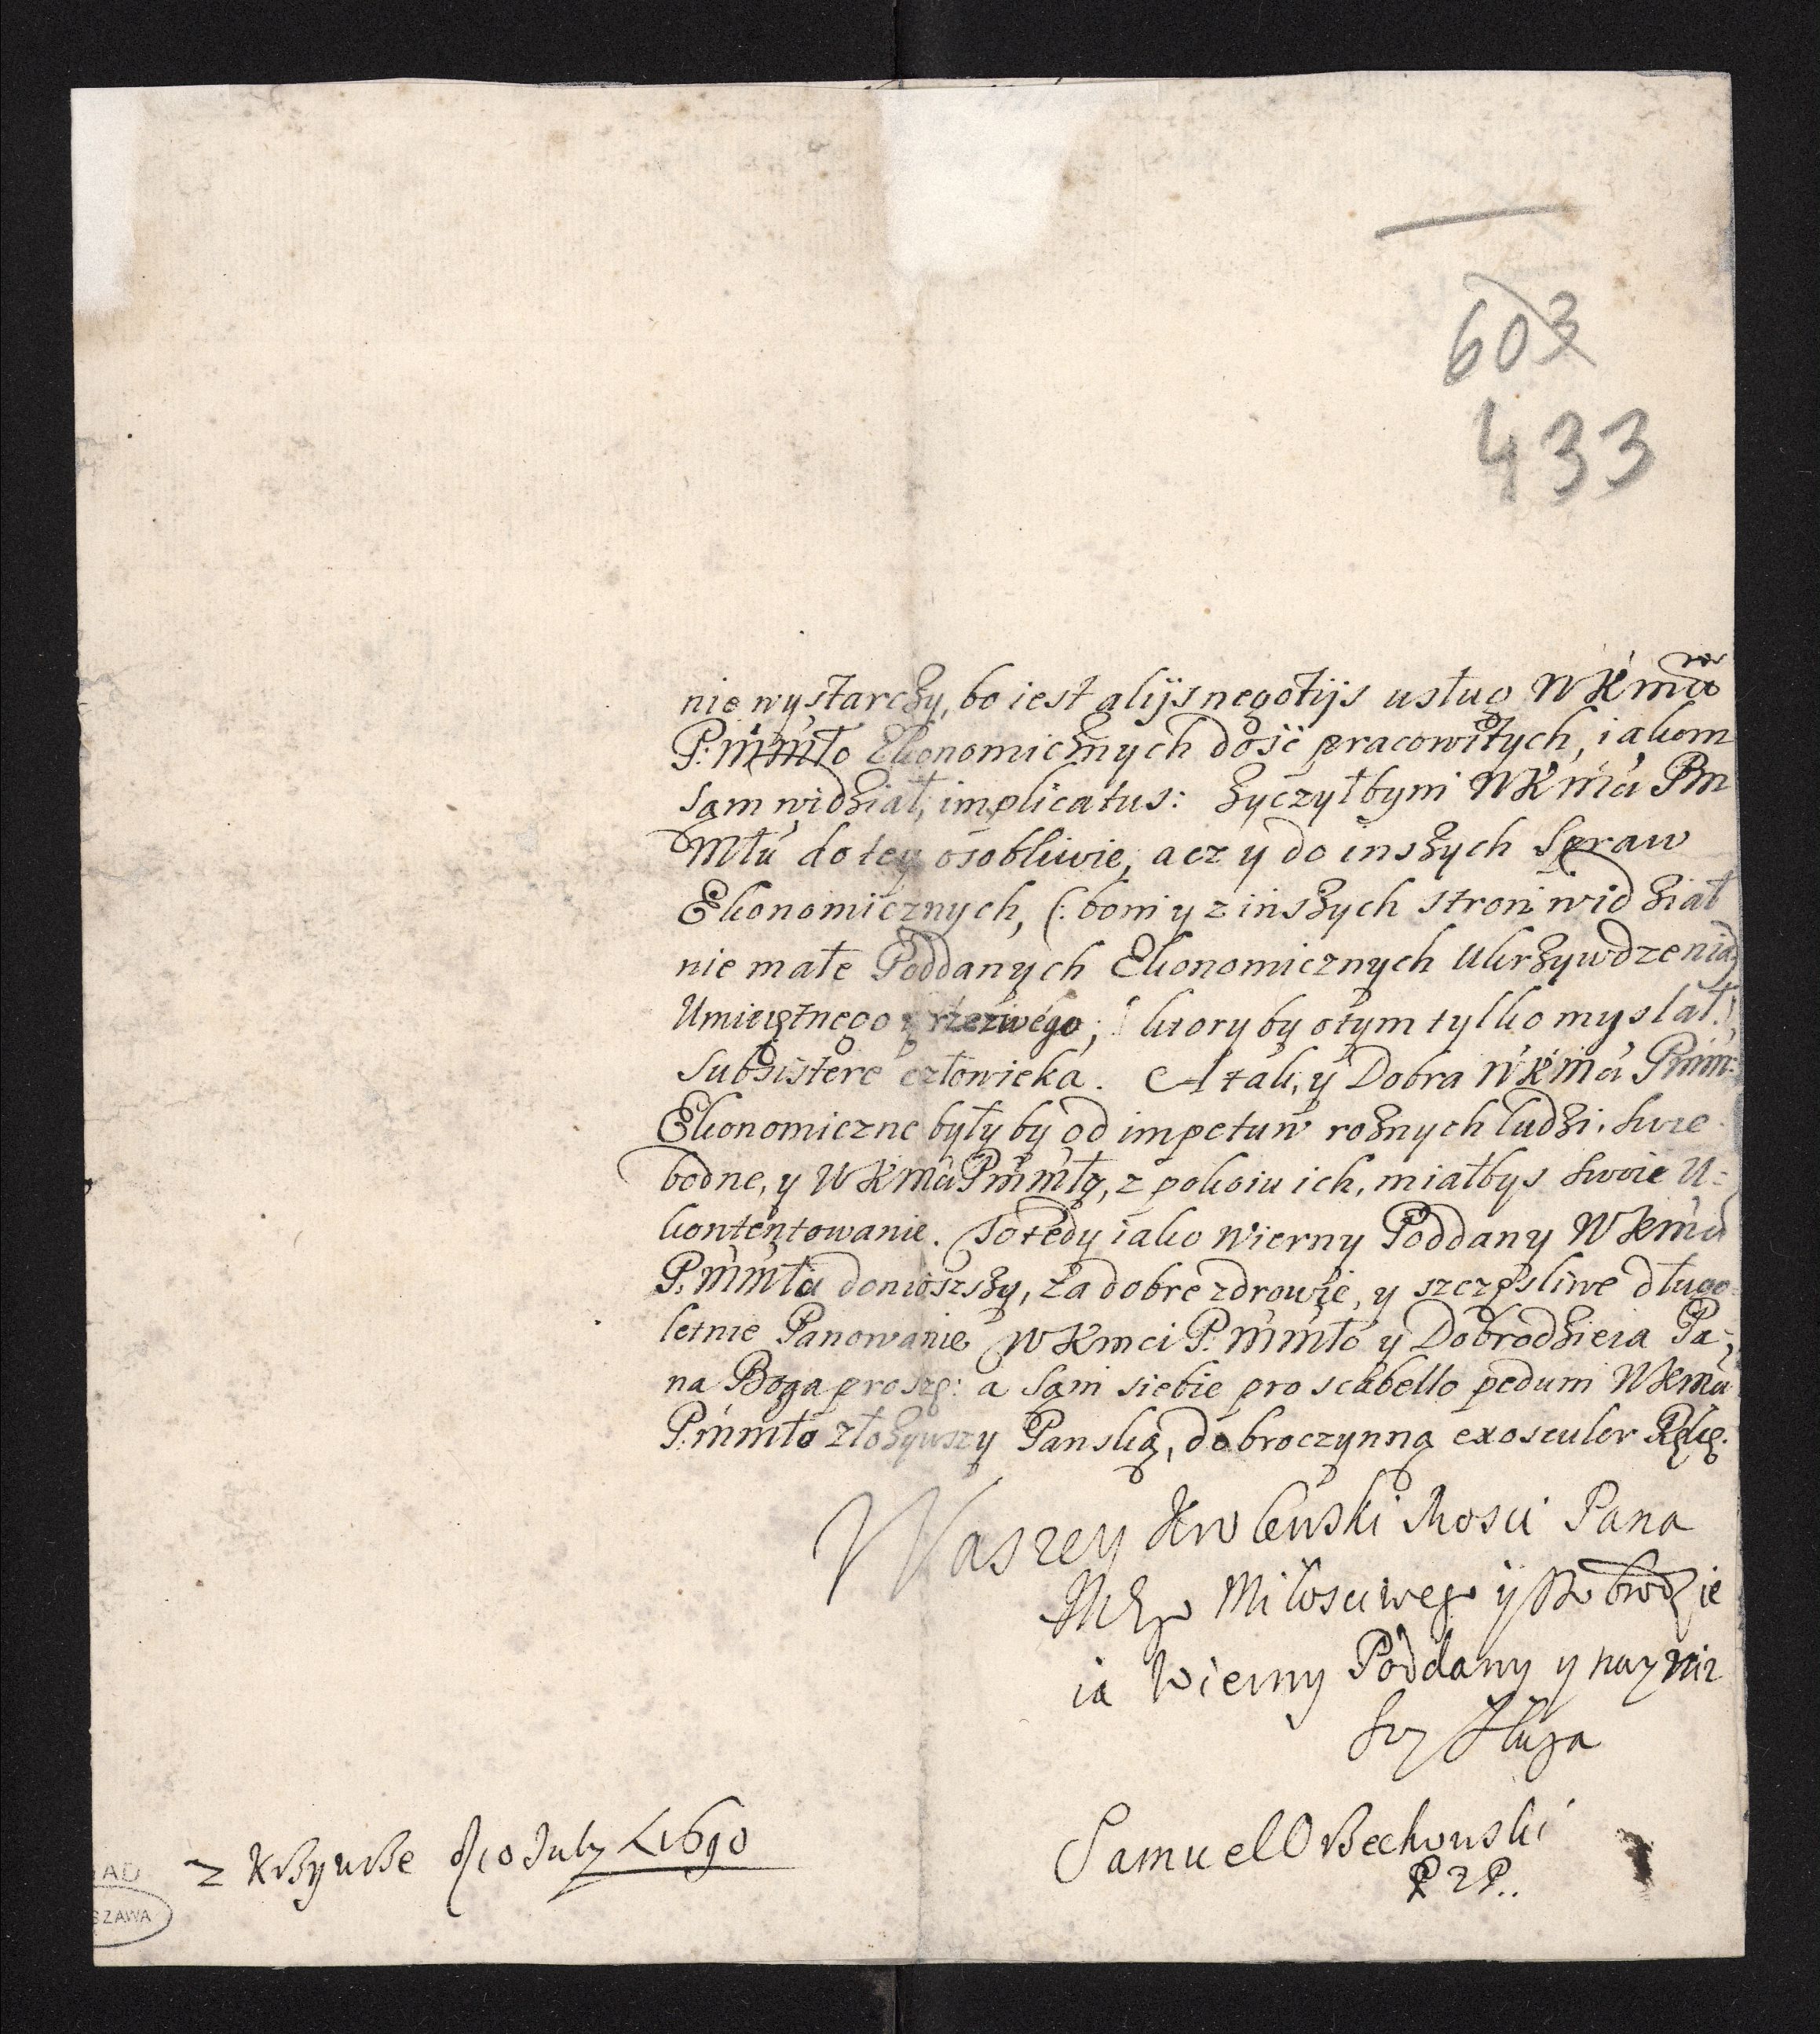 603
433
nie wystarczy, bo iest alijs negotijs usług WKmći
P: mmło Ekonomicznych dość pracowitych, iakom
sąm widział, implicatus: życzyłbym WKmći Pm
Młu do tey osobliwie, acz y do inszych Spraw
Ekonomicznych, (: bom y z inszych stron widział
nie małe Poddanych Ekonomicznych Ukrzywdzenia)
Umieiętnego y rzezwego, ktory by o tym tylko myslał,
Subsistere człowieka. A tak, y Dobra WKmći Pmm:
Ekonomiczne były by od impetuw rożnych ludzi, swie
bodne, y WKmć Pmmłą, z pokoiu ich, miałbys swoie U=
kontentowanie. To tedy iako wierny Poddany WKmći
P: mmła doniosszy, za dobre zdrowie, y szczęsliwe długo
letnie Panowanie WKmci P: mmło y Dobrodzieia Pa=
na Boga proszę: a sąm siebie pro scabello pedum WKmći
P: mmło złożywszy Panską, dobroczynną exosculor Rękę.
Waszey Krolewski Mosci Pana
Mego Miłosciwego y Dobrodzie
ia Wierny Poddany y nayniz
szy Sługa
Samuel Orzechowski
P z P..
z Krzywcze d 10 July 1690
AD
SZAWA